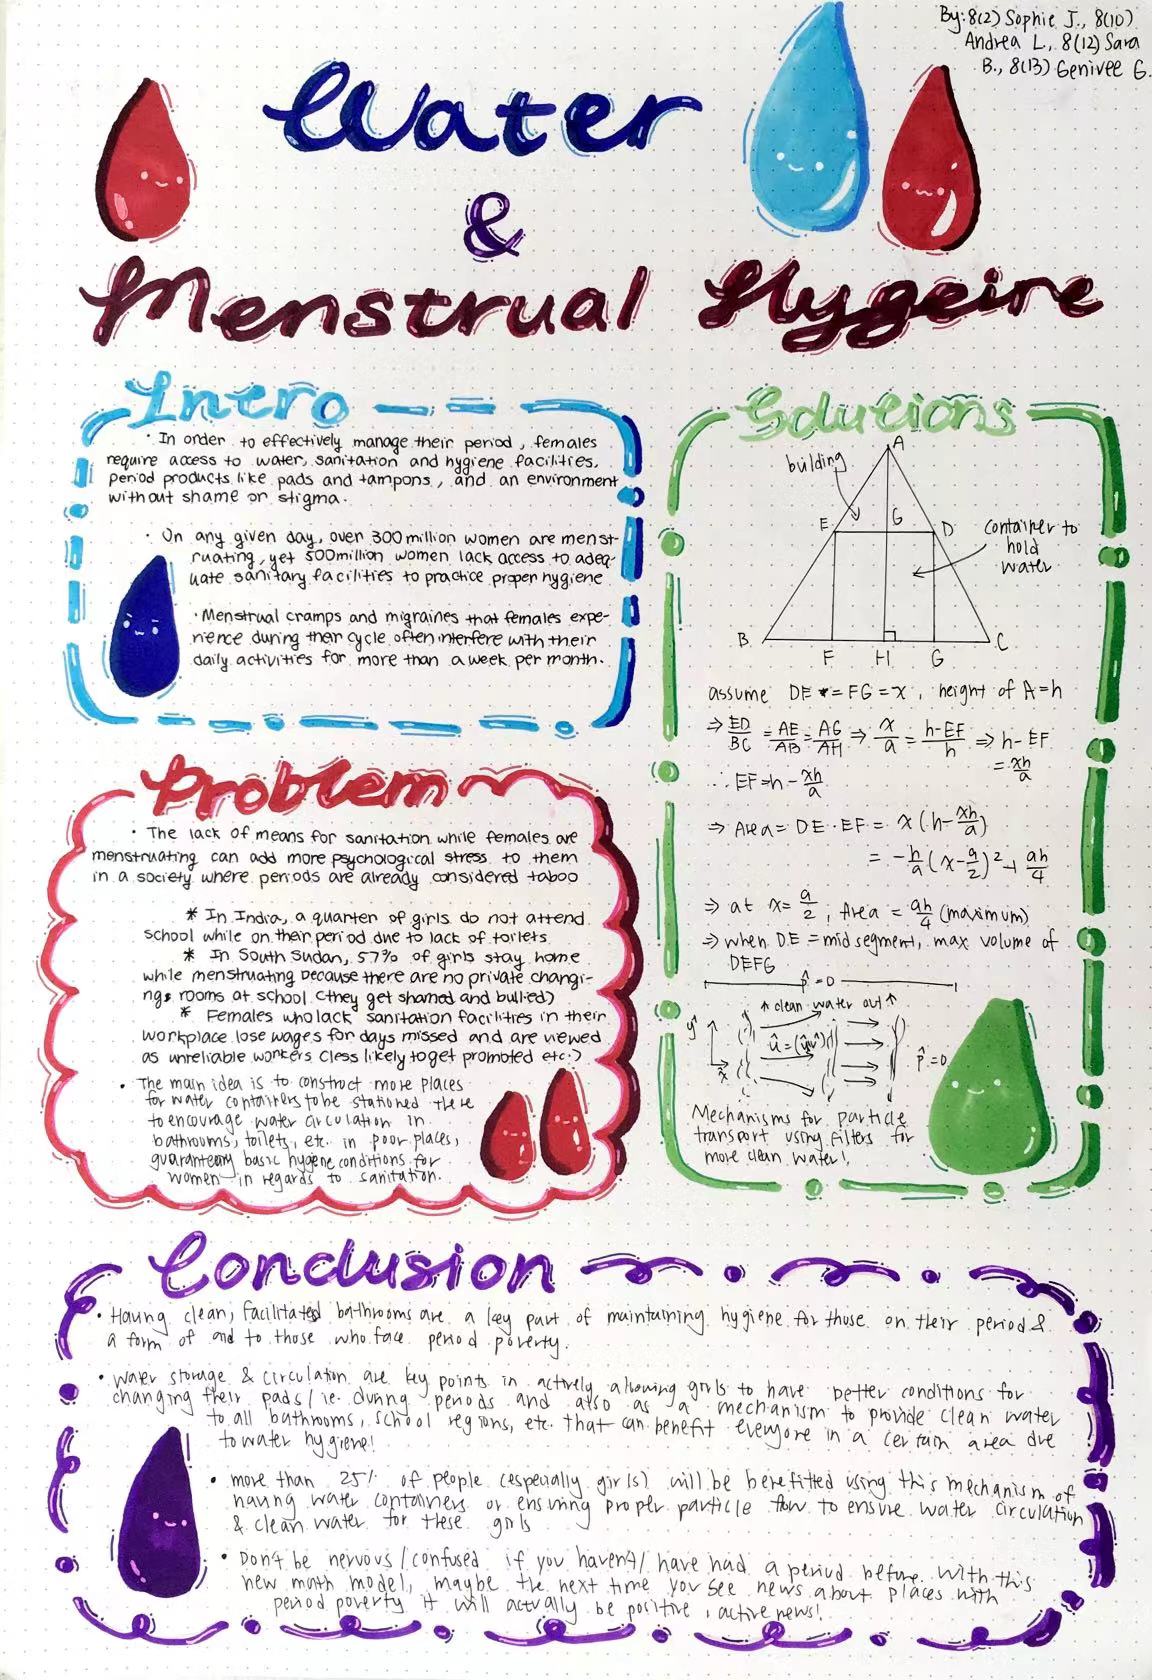 By: 8(2) Sophie J., 8(10)
Andrea L., 8(12) Sara
B., 8(13) Genivee G.
Water
&
Menstrual Hygeine
Intro
· In order to effectively manage their period, females
require access to water, sanitation and hygiene facilities,
period products like pads and tampons, and an environment
without shame or stigma.
· On any given day, over 300 million women are menst-
ruating, yet 500 million women lack access to adeq-
uate sanitary facilities to practice proper hygiene
· Menstrual cramps and migraines that females expe-
rience during their cycle often interfere with their
daily activities for more than a week per month.
Problem
· The lack of means for sanitation while females are
menstruating can add more psychological stress to them
in a society where periods are already considered taboo
* In India, a quarter of girls do not attend
school while on their period due to lack of toilets
* In South Sudan, 57% of girls stay home
while menstruating because there are no private changi-
ng rooms at school (they get shamed and bullied)
* Females who lack sanitation facilities in their
workplace lose wages for days missed and are viewed
as unreliable workers (less likely to get promoted etc.)
· The main idea is to construct more places
for water containers to be stationed there
to encourage water circulation in
bathrooms, toilets, etc. in poor places,
guaranteeing basic hygene conditions for
women in regards to sanitation.
Solutions
A
building
E G D
container to
hold
water
B F H G C
assume DE = FG = x, height of A = h
⇒ ED/BC = AE/AB = AG/AH ⇒ x/a = (h-EF)/h ⇒ h-EF
= xh/a
∴ EF = h - xh/a
⇒ Area = DE · EF = x(h - xh/a)
= -h/a (x - a/2)² + ah/4
⇒ at x = a/2, Area = ah/4 (maximum)
⇒ when DE = midsegment, max volume of
DEFG
p̂ = 0
↑ clean water out ↑
ŷ
x̂
p̂ = 0
Mechanisms for particle
transport using filters for
more clean water!
Conclusion
· Having clean, facilitated bathrooms are a key part of maintaining hygiene for those on their period &
a form of aid to those who face period poverty.
· Water storage & circulation are key points in actively allowing girls to have better conditions for
changing their pads / ie. during periods and also as a mechanism to provide clean water
to all bathrooms, school regions, etc. that can benefit everyone in a certain area due
to water hygiene!
· more than 25% of people (especially girls) will be benefitted using this mechanism of
having water containers or ensuring proper particle flow to ensure water circulation
& clean water for these girls
· Don't be nervous / confused if you haven't / have had a period before. With this
new math model, maybe the next time you see news about places with
period poverty it will actually be positive, active news!